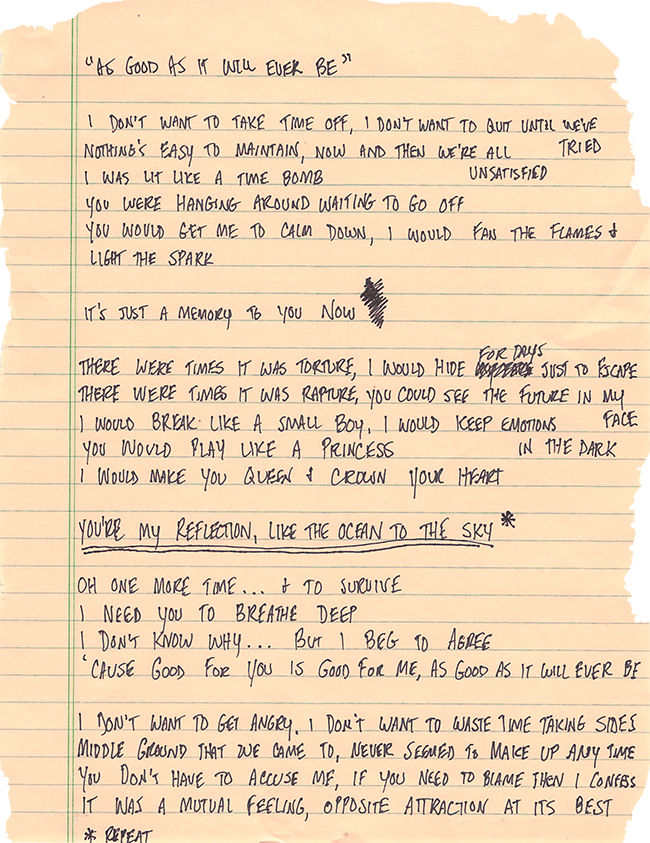 "AS GOOD AS IT WILL EVER BE"
I DON'T WANT TO TAKE TIME OFF, I DON'T WANT TO QUIT UNTIL WE'VE
TRIED
NOTHING'S EASY TO MAINTAIN, NOW AND THEN WE'RE ALL
UNSATISFIED
I WAS LIT LIKE A TIME BOMB
YOU WERE HANGING AROUND WAITING TO GO OFF
YOU WOULD GET ME TO CALM DOWN, I WOULD FAN THE FLAMES &
LIGHT THE SPARK
IT'S JUST A MEMORY TO YOU NOW
THERE WERE TIMES IT WAS TORTURE, I WOULD HIDE FOR DAYS JUST TO ESCAPE
THERE WERE TIMES IT WAS RAPTURE, YOU COULD SEE THE FUTURE IN MY
FACE
I WOULD BREAK LIKE A SMALL BOY, I WOULD KEEP EMOTIONS
IN THE DARK
YOU WOULD PLAY LIKE A PRINCESS
I WOULD MAKE YOU QUEEN & CROWN YOUR HEART
YOU'RE MY REFLECTION, LIKE THE OCEAN TO THE SKY *
OH ONE MORE TIME... & TO SURVIVE
I NEED YOU TO BREATHE DEEP
I DON'T KNOW WHY... BUT I BEG TO AGREE
'CAUSE GOOD FOR YOU IS GOOD FOR ME, AS GOOD AS IT WILL EVER BE
I DON'T WANT TO GET ANGRY, I DON'T WANT TO WASTE TIME TAKING SIDES
MIDDLE GROUND THAT WE CAME TO, NEVER SEEMED TO MAKE UP ANY TIME
YOU DON'T HAVE TO ACCUSE ME, IF YOU NEED TO BLAME THEN I CONFESS
IT WAS A MUTUAL FEELING, OPPOSITE ATTRACTION AT ITS BEST
* REPEAT